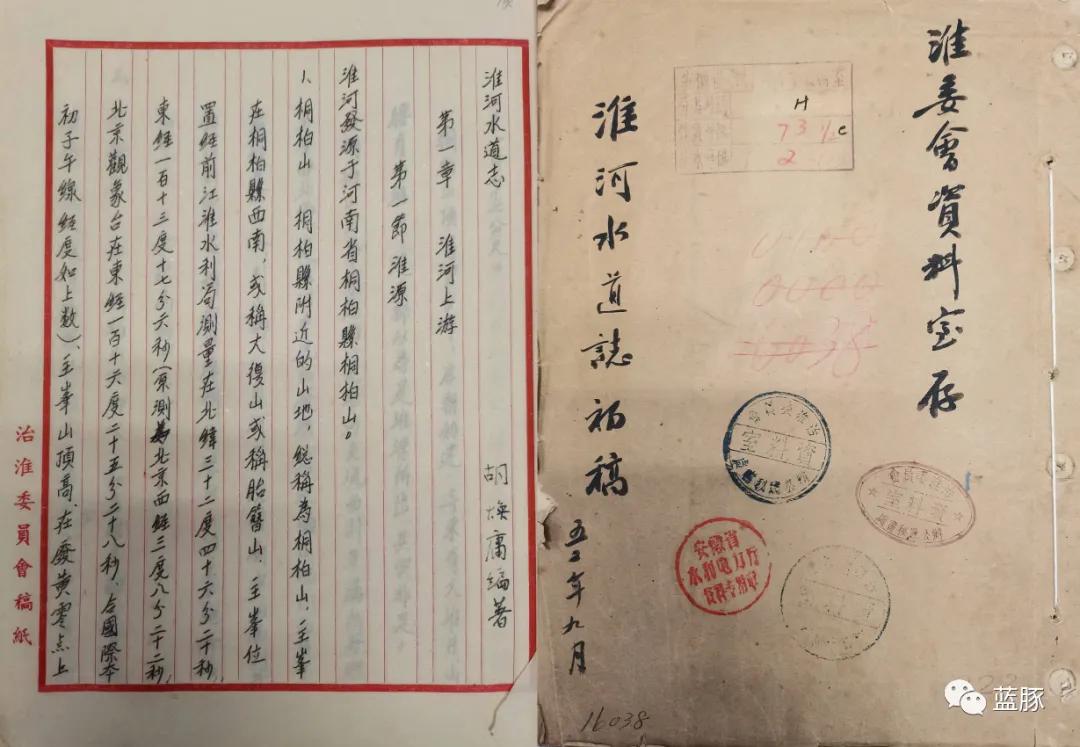 淮委會資料室存
淮河水道誌初稿
五二年九月
H
73
C
2
0038
資料室
資料室
安徽省
水利电力厅
資料专用章
16038
蓝豚
淮河水道志
第一章 淮河上游
第一節 淮源
胡煥庸編著
淮河發源于河南省桐柏縣桐柏山。
1、桐柏山 桐柏縣附近的山地，總稱為桐柏山，主峯
在桐柏縣西南，或稱大復山或稱胎簪山，主峯位
置經前江淮水利局測量在北緯三十二度四十六分二十秒，
東經一百十三度十七分六秒（原測為北京西經三度八分二十二秒，
北京觀象台在東經一百十六度二十五分二十八秒，合國際本
初子午線經度如上數）、主峯山頂高，在廢黃零点上
治淮委員會稿紙